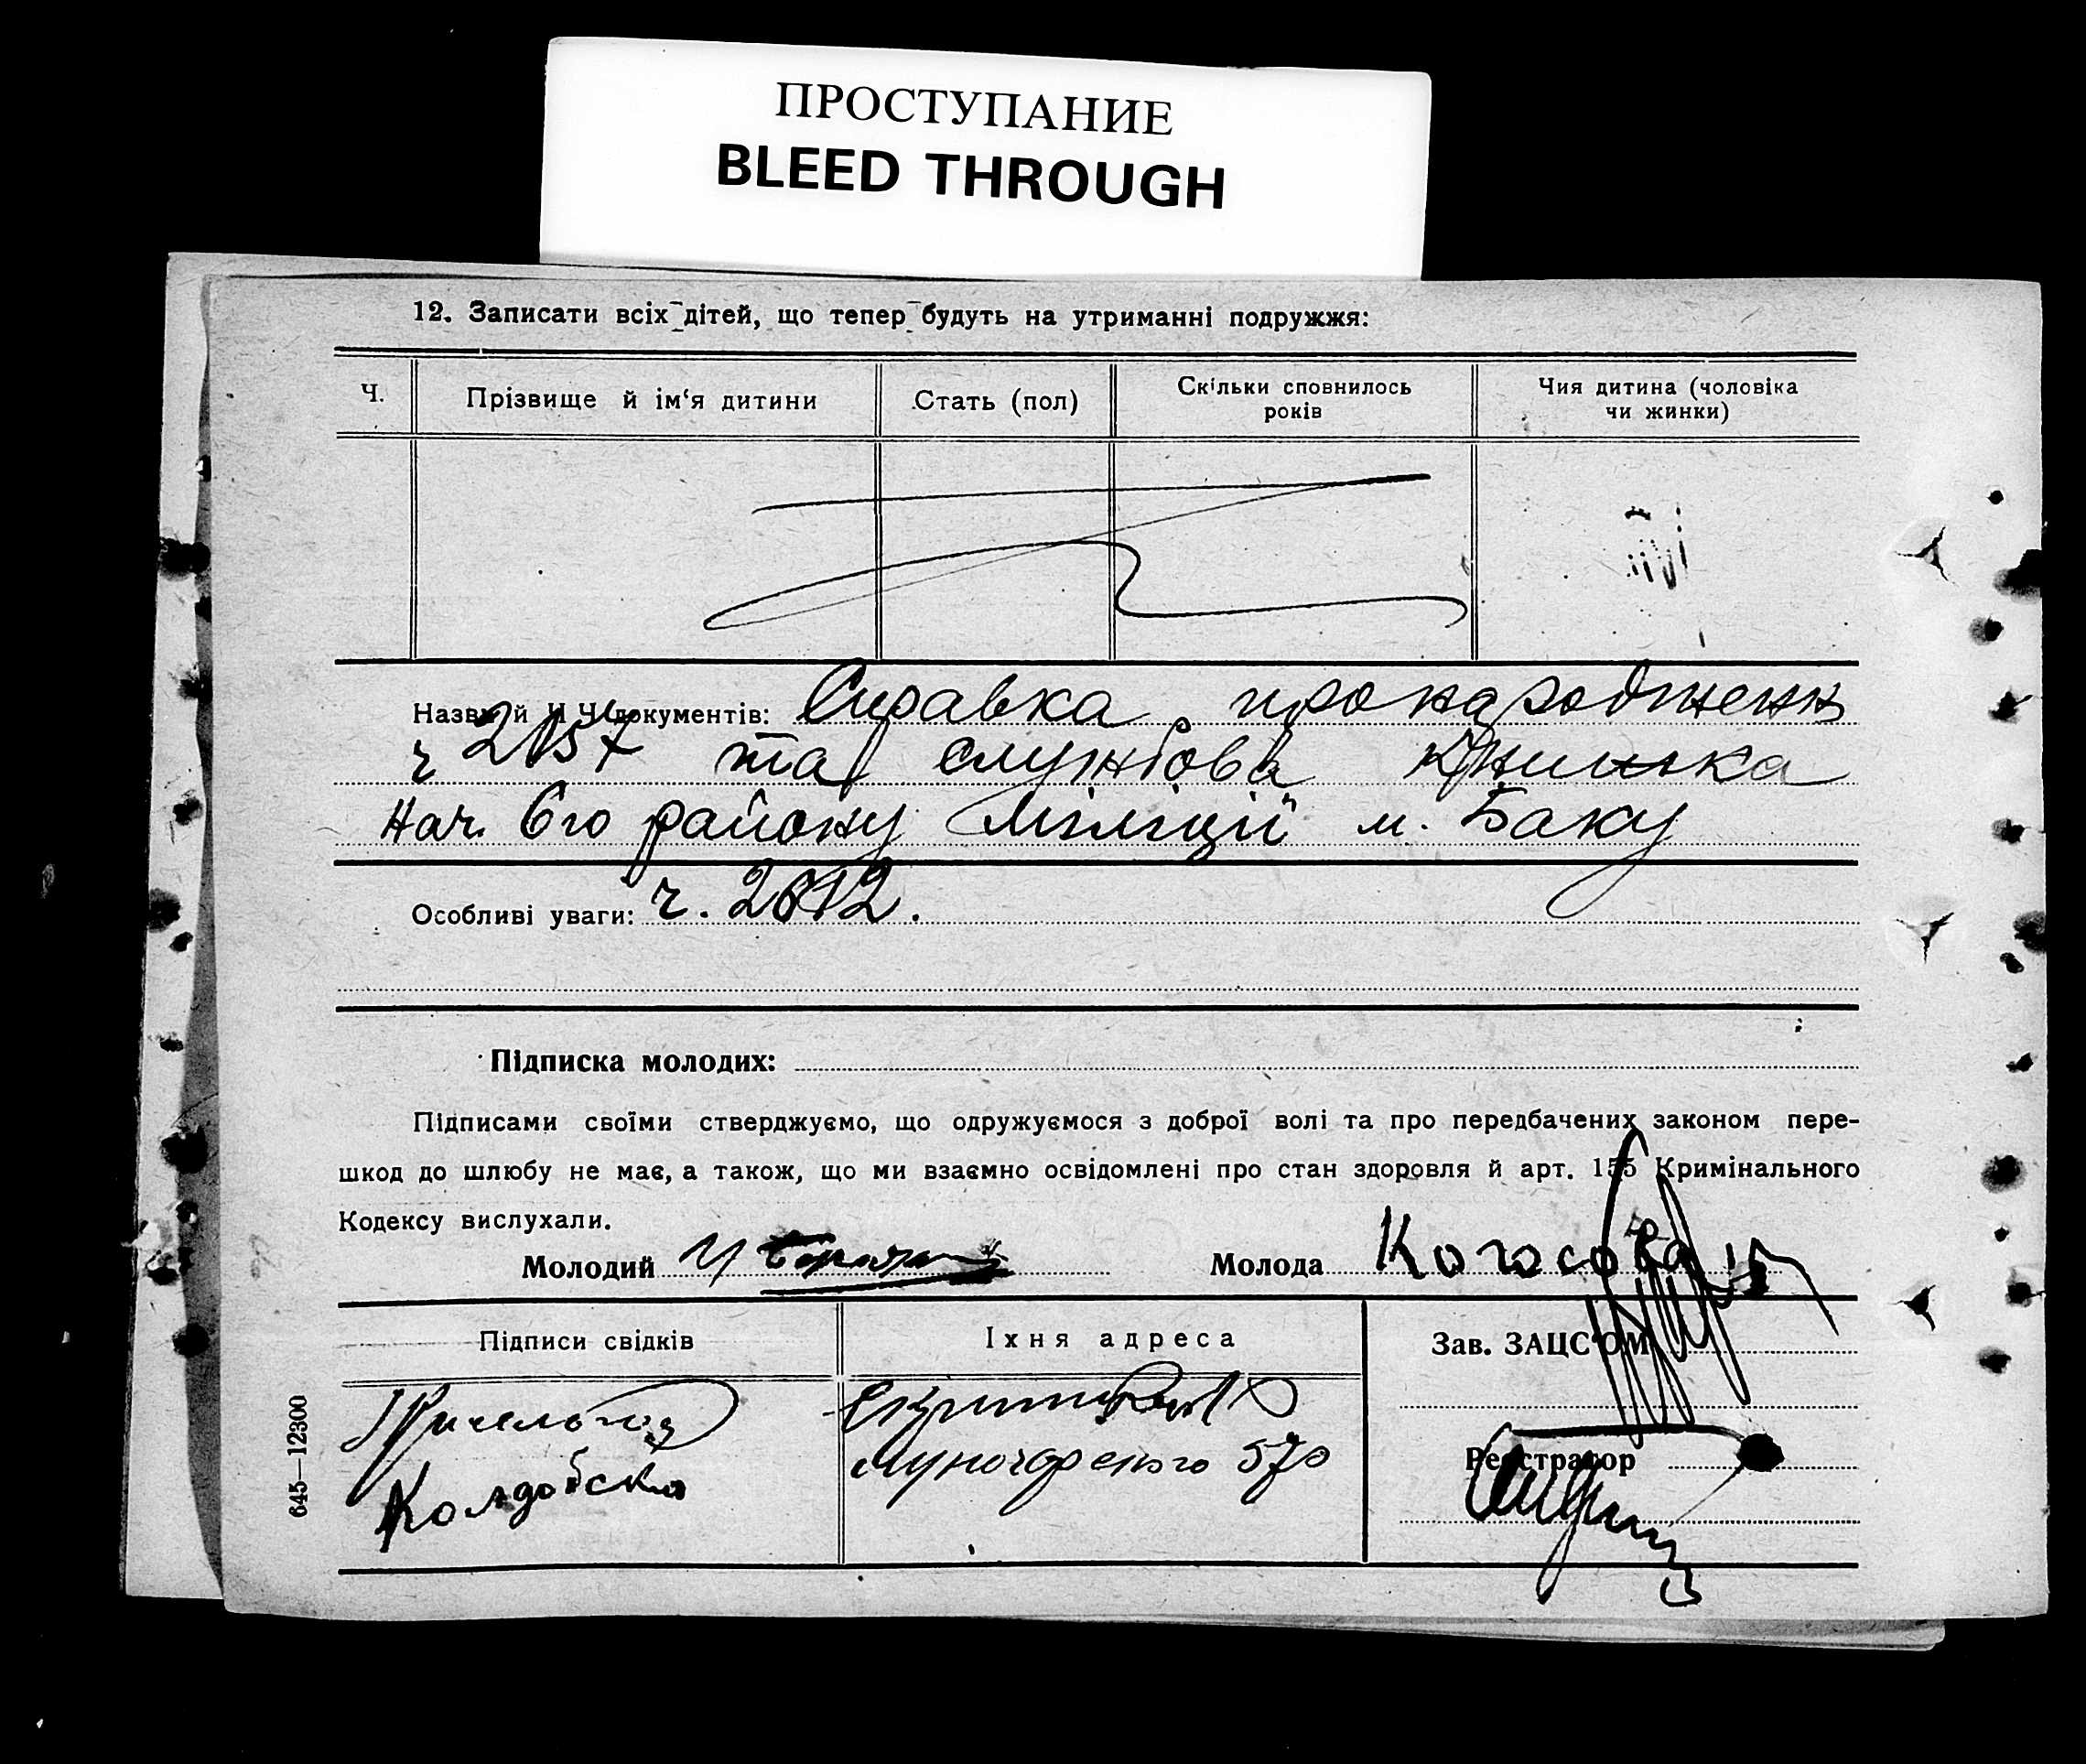 ПРОСТУПАНИЕ
BLEED THROUGH
12. Записати всіх дітей, що тепер будуть на утриманні подружжя:
Ч.
Прізвище й ім‘я дитини
Стать (пол)
Скільки сповнилось
років
Чия дитина (чоловіка
чи жинки)
Назви й Ч.Ч. документів: Справка про народженн
ч 2157 та службова Книжка
Нач. 6го району Міліції м. Баку
Особливі уваги: ч. 2612.
Підписка молодих:
Підписами своїми стверджуємо, що одружуємося з доброї волі та про передбачених законом пере-
шкод до шлюбу не має, а також, що ми взаємно освідомлені про стан здоровля й арт. 155 Кримінального
Кодексу вислухали.
Молодий
Молода
Підписи свідків
Їхня адреса
Зав. ЗАЦС‘ОМ
Реєстратор
645—12300